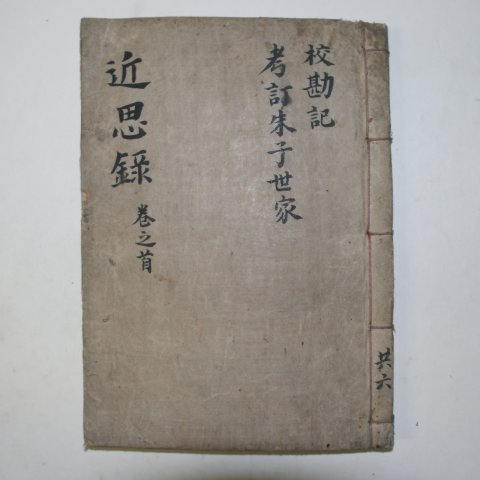 校勘記
考訂朱子世家
近思錄 卷之首
共六